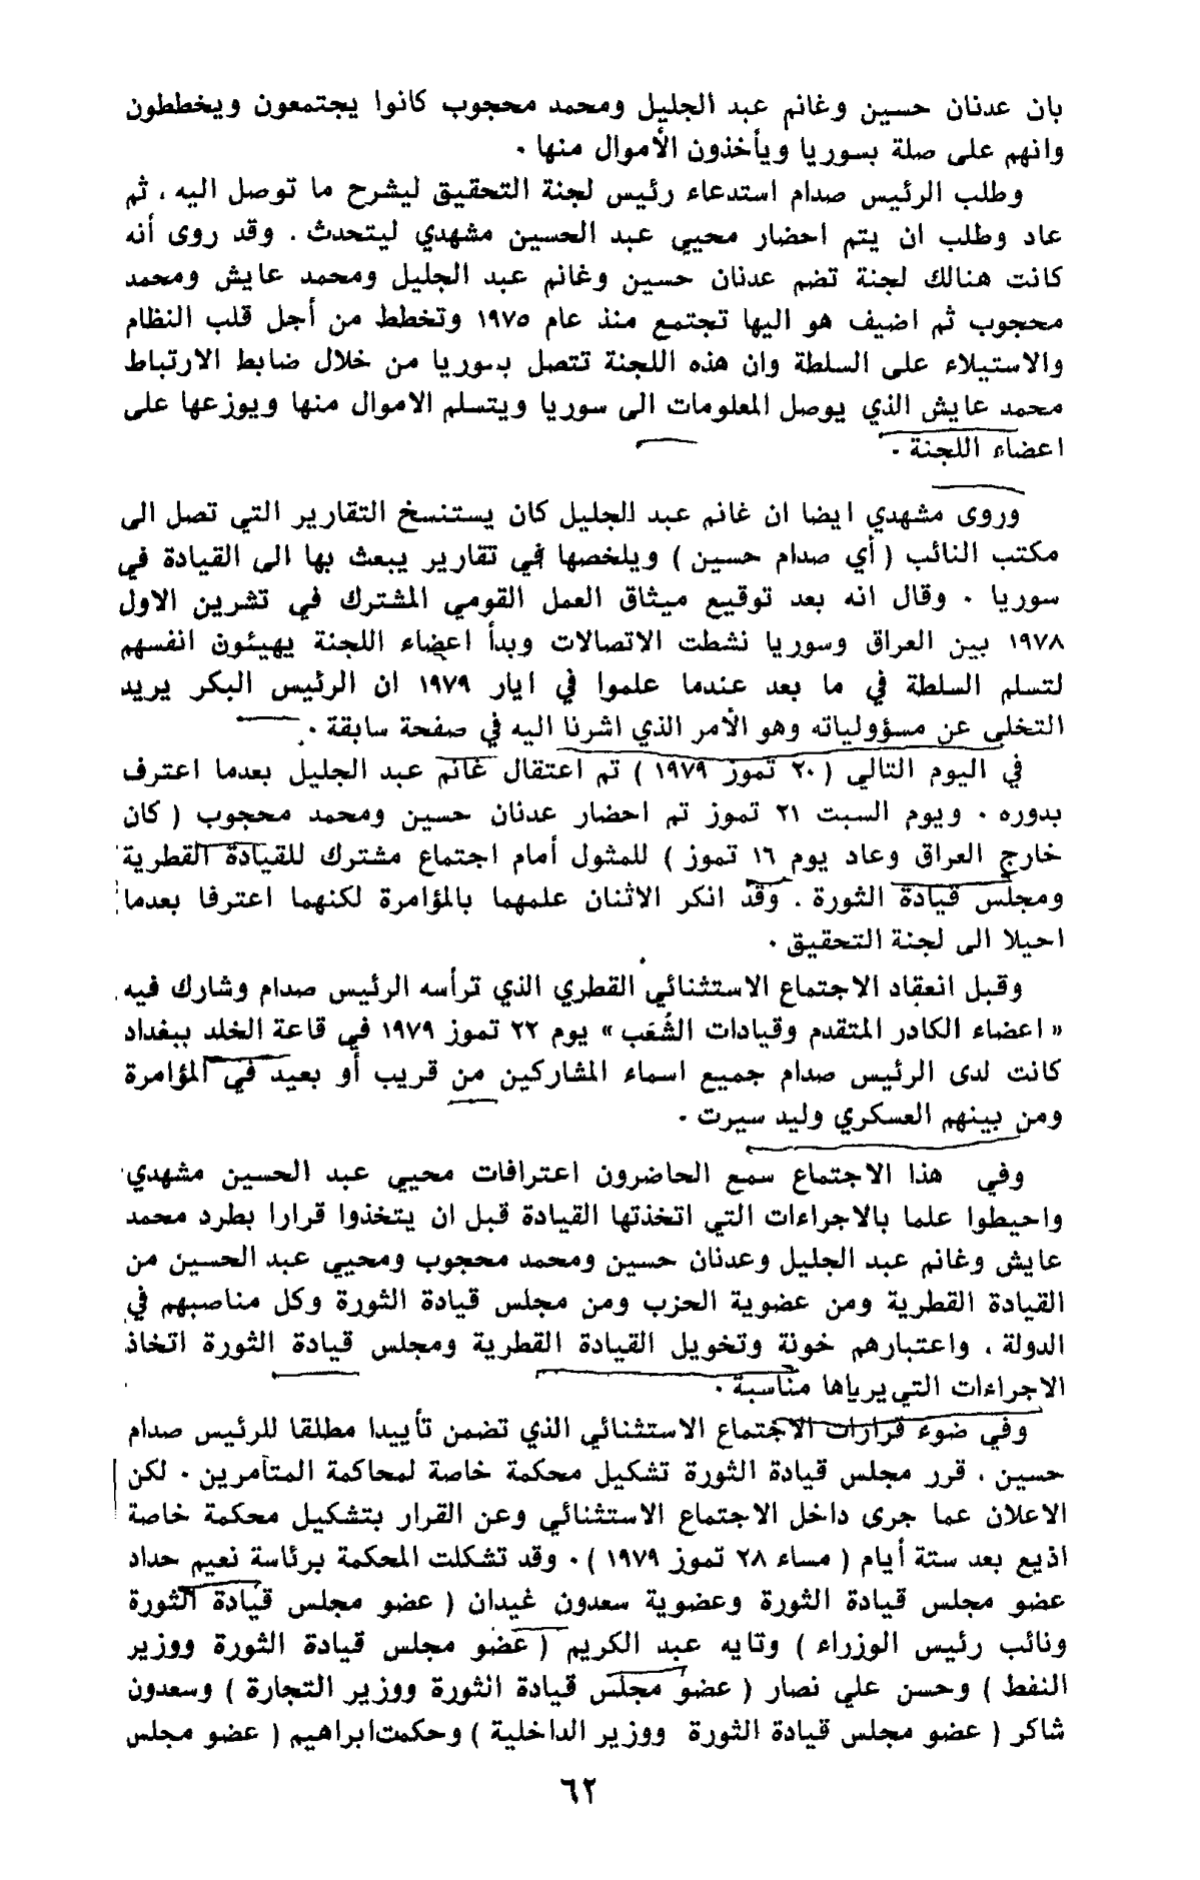 بان عدنان حسين وغانم عبد الجليل ومحمد محجوب كانوا يجتمعون ويخططون
وانهم على صلة بسوريا ويأخذون الأموال منها .
وطلب الرئيس صدام استدعاء رئيس لجنة التحقيق ليشرح ما توصل اليه ، ثم
عاد وطلب ان يتم احضار محيي عبد الحسين مشهدي ليتحدث . وقد روى أنه
كانت هنالك لجنة تضم عدنان حسين وغانم عبد الجليل ومحمد عايش ومحمد
محجوب ثم اضيف هو اليها تجتمع منذ عام ١٩٧٥ وتخطط من أجل قلب النظام
والاستيلاء على السلطة وان هذه اللجنة تتصل بسوريا من خلال ضابط الارتباط
محمد عايش الذي يوصل المعلومات الى سوريا ويتسلم الاموال منها ويوزعها على
اعضاء اللجنة .
وروى مشهدي ايضا ان غانم عبد الجليل كان يستنسخ التقارير التي تصل الى
مكتب النائب ( أي صدام حسين ) ويلخصها في تقارير يبعث بها الى القيادة في
سوريا . وقال انه بعد توقيع ميثاق العمل القومي المشترك في تشرين الاول
١٩٧٨ بين العراق وسوريا نشطت الاتصالات وبدأ اعضاء اللجنة يهيئون انفسهم
لتسلم السلطة في ما بعد عندما علموا في ايار ١٩٧٩ ان الرئيس البكر يريد
التخلي عن مسؤولياته وهو الأمر الذي اشرنا اليه في صفحة سابقة .
في اليوم التالي ( ٢٠ تموز ١٩٧٩ ) تم اعتقال غانم عبد الجليل بعدما اعترف
بدوره . ويوم السبت ٢١ تموز تم احضار عدنان حسين ومحمد محجوب ( كان
خارج العراق وعاد يوم ١٦ تموز ) للمثول أمام اجتماع مشترك للقيادة القطرية
ومجلس قيادة الثورة . وقد انكر الاثنان علمهما بالمؤامرة لكنهما اعترفا بعدما
احيلا الى لجنة التحقيق .
وقبل انعقاد الاجتماع الاستثنائي القطري الذي ترأسه الرئيس صدام وشارك فيه
« اعضاء الكادر المتقدم وقيادات الشُعَب » يوم ٢٢ تموز ١٩٧٩ في قاعة الخلد ببغداد
كانت لدى الرئيس صدام جميع اسماء المشاركين من قريب أو بعيد في المؤامرة
ومن بينهم العسكري وليد سيرت .
وفي هذا الاجتماع سمع الحاضرون اعترافات محيي عبد الحسين مشهدي
واحيطوا علما بالاجراءات التي اتخذتها القيادة قبل ان يتخذوا قرارا بطرد محمد
عايش وغانم عبد الجليل وعدنان حسين ومحمد محجوب ومحيي عبد الحسين من
القيادة القطرية ومن عضوية الحزب ومن مجلس قيادة الثورة وكل مناصبهم في
الدولة ، واعتبارهم خونة وتخويل القيادة القطرية ومجلس قيادة الثورة اتخاذ
الاجراءات التي يرياها مناسبة .
وفي ضوء قرارات الاجتماع الاستثنائي الذي تضمن تأييدا مطلقا للرئيس صدام
حسين ، قرر مجلس قيادة الثورة تشكيل محكمة خاصة لمحاكمة المتآمرين . لكن
الاعلان عما جرى داخل الاجتماع الاستثنائي وعن القرار بتشكيل محكمة خاصة
اذيع بعد ستة أيام ( مساء ٢٨ تموز ١٩٧٩ ) . وقد تشكلت المحكمة برئاسة نعيم حداد
عضو مجلس قيادة الثورة وعضوية سعدون غيدان ( عضو مجلس قيادة الثورة
ونائب رئيس الوزراء ) وتايه عبد الكريم ( عضو مجلس قيادة الثورة ووزير
النفط ) وحسن علي نصار ( عضو مجلس قيادة الثورة ووزير التجارة ) وسعدون
شاكر ( عضو مجلس قيادة الثورة ووزير الداخلية ) وحكمت ابراهيم ( عضو مجلس
٦٢